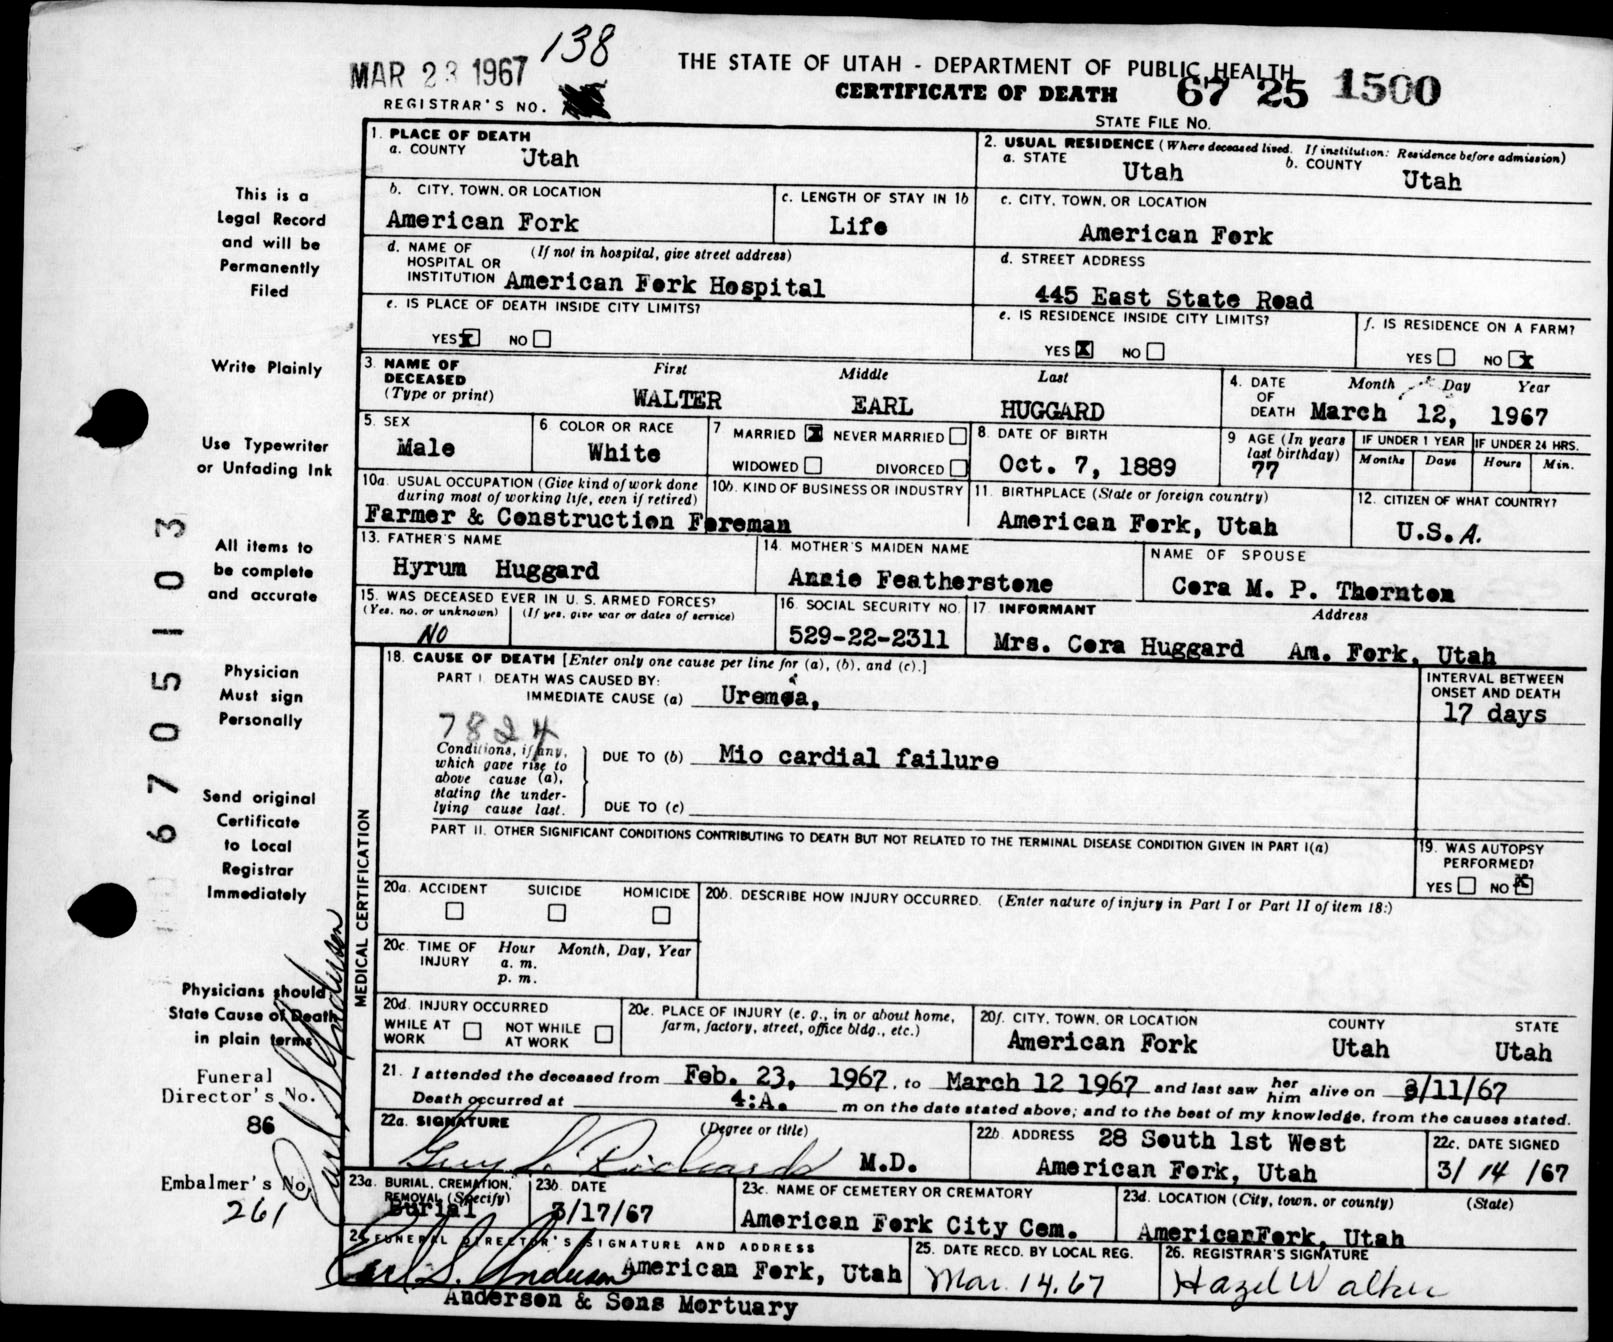 138
MAR 23 1967
THE STATE OF UTAH - DEPARTMENT OF PUBLIC HEALTH
CERTIFICATE OF DEATH 67 25 1500
REGISTRAR'S NO.
STATE FILE NO.
This is a
Legal Record
and will be
Permanently
Filed
Write Plainly
Use Typewriter
or Unfading Ink
All items to
be complete
and accurate
Physician
Must sign
Personally
Send original
Certificate
to Local
Registrar
Immediately
Physicians should
State Cause of Death
in plain terms
Funeral
Director's No.
86
Embalmer's No.
261
6705103
Earl S. Anderson
1. PLACE OF DEATH
a. COUNTY Utah
2. USUAL RESIDENCE (Where deceased lived. If institution: Residence before admission)
a. STATE Utah b. COUNTY Utah
b. CITY, TOWN, OR LOCATION
American Fork
c. LENGTH OF STAY IN 1b
Life
c. CITY, TOWN, OR LOCATION
American Fork
d. NAME OF HOSPITAL OR INSTITUTION (If not in hospital, give street address)
American Fork Hospital
d. STREET ADDRESS
445 East State Road
e. IS PLACE OF DEATH INSIDE CITY LIMITS?
YES X NO
e. IS RESIDENCE INSIDE CITY LIMITS?
YES X NO
f. IS RESIDENCE ON A FARM?
YES NO X
3. NAME OF DECEASED (Type or print)
First Middle Last
WALTER EARL HUGGARD
4. DATE OF DEATH
Month Day Year
March 12, 1967
5. SEX
Male
6 COLOR OR RACE
White
7 MARRIED X NEVER MARRIED
WIDOWED DIVORCED
8. DATE OF BIRTH
Oct. 7, 1889
9 AGE (In years last birthday)
77
IF UNDER 1 YEAR
Months Days
IF UNDER 24 HRS.
Hours Min.
10a. USUAL OCCUPATION (Give kind of work done during most of working life, even if retired)
Farmer & Construction Foreman
10b. KIND OF BUSINESS OR INDUSTRY
11. BIRTHPLACE (State or foreign country)
American Fork, Utah
12. CITIZEN OF WHAT COUNTRY?
U.S.A.
13. FATHER'S NAME
Hyrum Huggard
14. MOTHER'S MAIDEN NAME
Annie Featherstone
NAME OF SPOUSE
Cora M. P. Thornton
15. WAS DECEASED EVER IN U. S. ARMED FORCES?
(Yes, no, or unknown) (If yes, give war or dates of service)
NO
16. SOCIAL SECURITY NO.
529-22-2311
17. INFORMANT Address
Mrs. Cora Huggard Am. Fork, Utah
MEDICAL CERTIFICATION
18. CAUSE OF DEATH [Enter only one cause per line for (a), (b), and (c).]
PART I. DEATH WAS CAUSED BY:
IMMEDIATE CAUSE (a) Uremia,
INTERVAL BETWEEN ONSET AND DEATH
17 days
7824
Conditions, if any, which gave rise to above cause (a), stating the underlying cause last.
DUE TO (b) Mio cardial failure
DUE TO (c)
PART II. OTHER SIGNIFICANT CONDITIONS CONTRIBUTING TO DEATH BUT NOT RELATED TO THE TERMINAL DISEASE CONDITION GIVEN IN PART I(a)
19. WAS AUTOPSY PERFORMED?
YES NO X
20a. ACCIDENT SUICIDE HOMICIDE
20b. DESCRIBE HOW INJURY OCCURRED. (Enter nature of injury in Part I or Part II of item 18:)
20c. TIME OF INJURY Hour a. m. p. m. Month, Day, Year
20d. INJURY OCCURRED
WHILE AT WORK NOT WHILE AT WORK
20e. PLACE OF INJURY (e. g., in or about home, farm, factory, street, office bldg., etc.)
20f. CITY, TOWN, OR LOCATION COUNTY STATE
American Fork Utah Utah
21. I attended the deceased from Feb. 23, 1967, to March 12 1967 and last saw her him alive on 3/11/67
Death occurred at 4:A. m on the date stated above; and to the best of my knowledge, from the causes stated.
22a. SIGNATURE (Degree or title)
Guy S. Richards M.D.
22b. ADDRESS 28 South 1st West
American Fork, Utah
22c. DATE SIGNED
3/ 14 /67
23a. BURIAL, CREMATION, REMOVAL (Specify)
Burial
23b. DATE
3/17/67
23c. NAME OF CEMETERY OR CREMATORY
American Fork City Cem.
23d. LOCATION (City, town, or county) (State)
AmericanFork, Utah
24 FUNERAL DIRECTOR'S SIGNATURE AND ADDRESS
Earl S. Anderson American Fork, Utah
Anderson & Sons Mortuary
25. DATE RECD. BY LOCAL REG.
Mar. 14, 67
26. REGISTRAR'S SIGNATURE
Hazel Walker